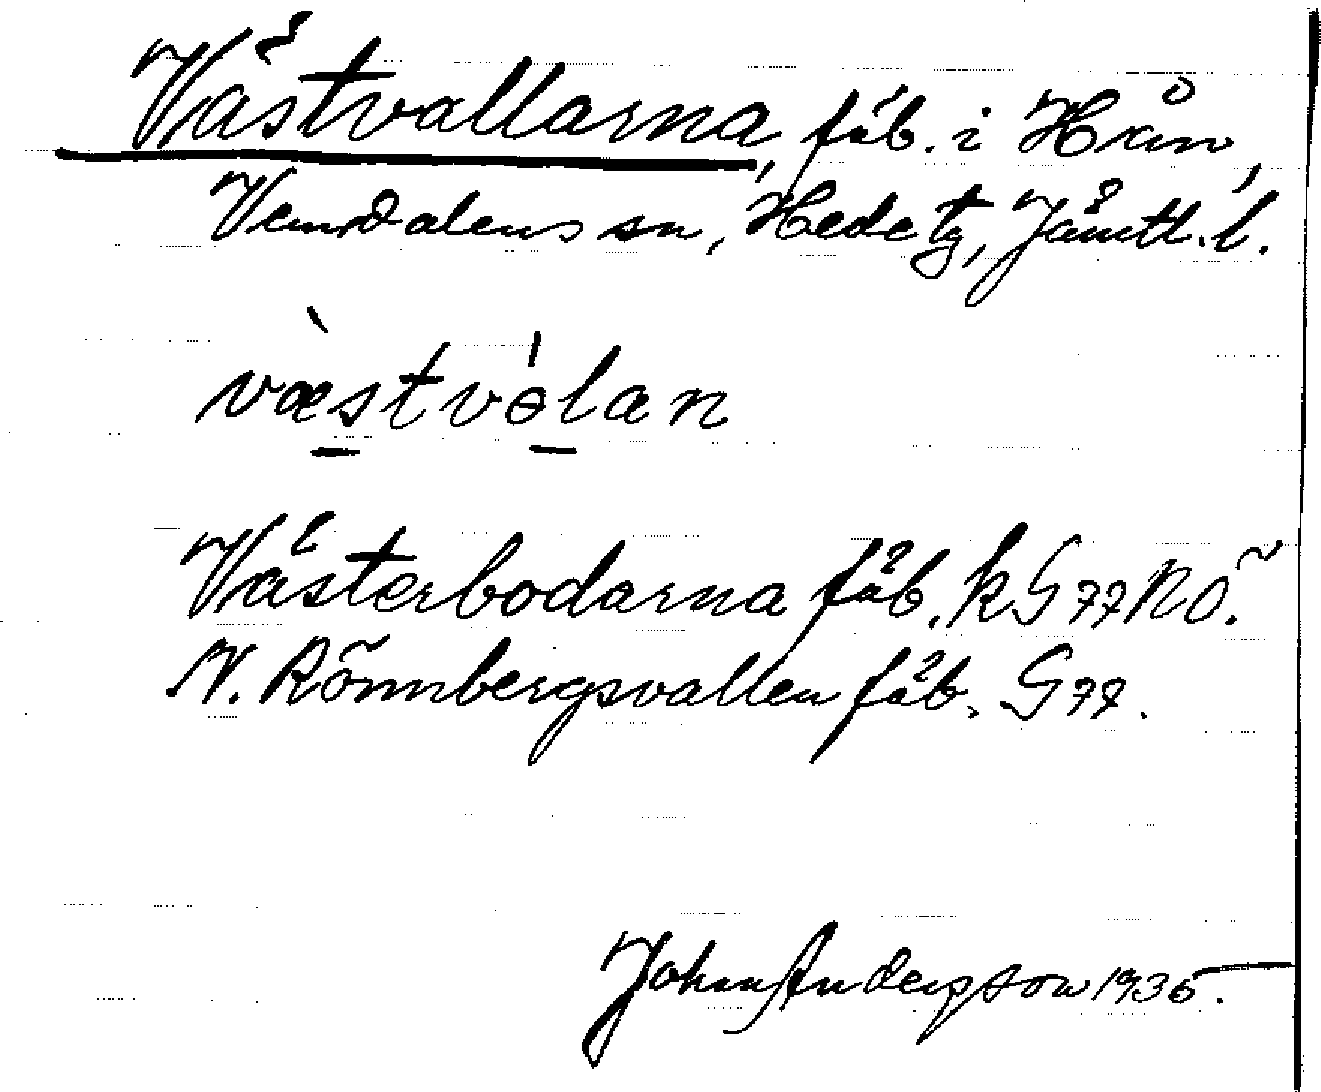 Västvallarna, fäb. i Hån,
Vemdalens sn, Hede tg, Jämtl. l.
væstvɵlan
Västerbodarna fäb. k G77 NO.
V. Rönnbergsvallen fäb. G77.
John Andersson 1935.